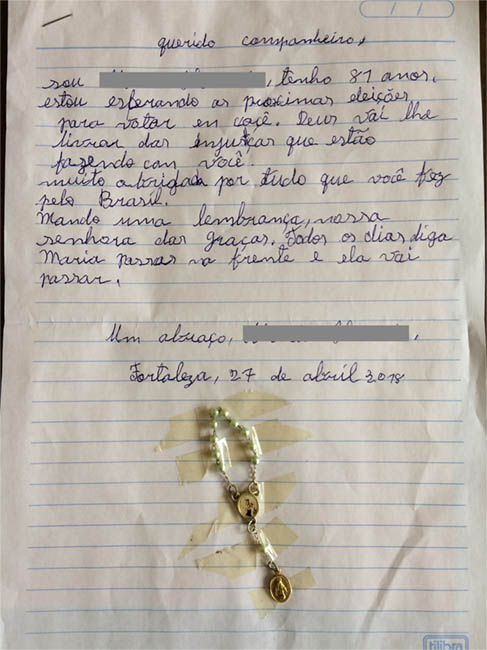 querido companheiro,
sou, tenho 81 anos.
estou esperando as proximas eleições
para votar en você. Deus vai lhe
livrar das injustiças que estão
fazendo con você.
muito obrigada por tudo que você fez
pelo Brasil.
Mando uma lembrança, nossa
senhora das graças. Todos os dias diga
Maria passas na frente e ela vai
passar.
Um abraço,
Fortaleza, 27 de abril 2018
tilibra